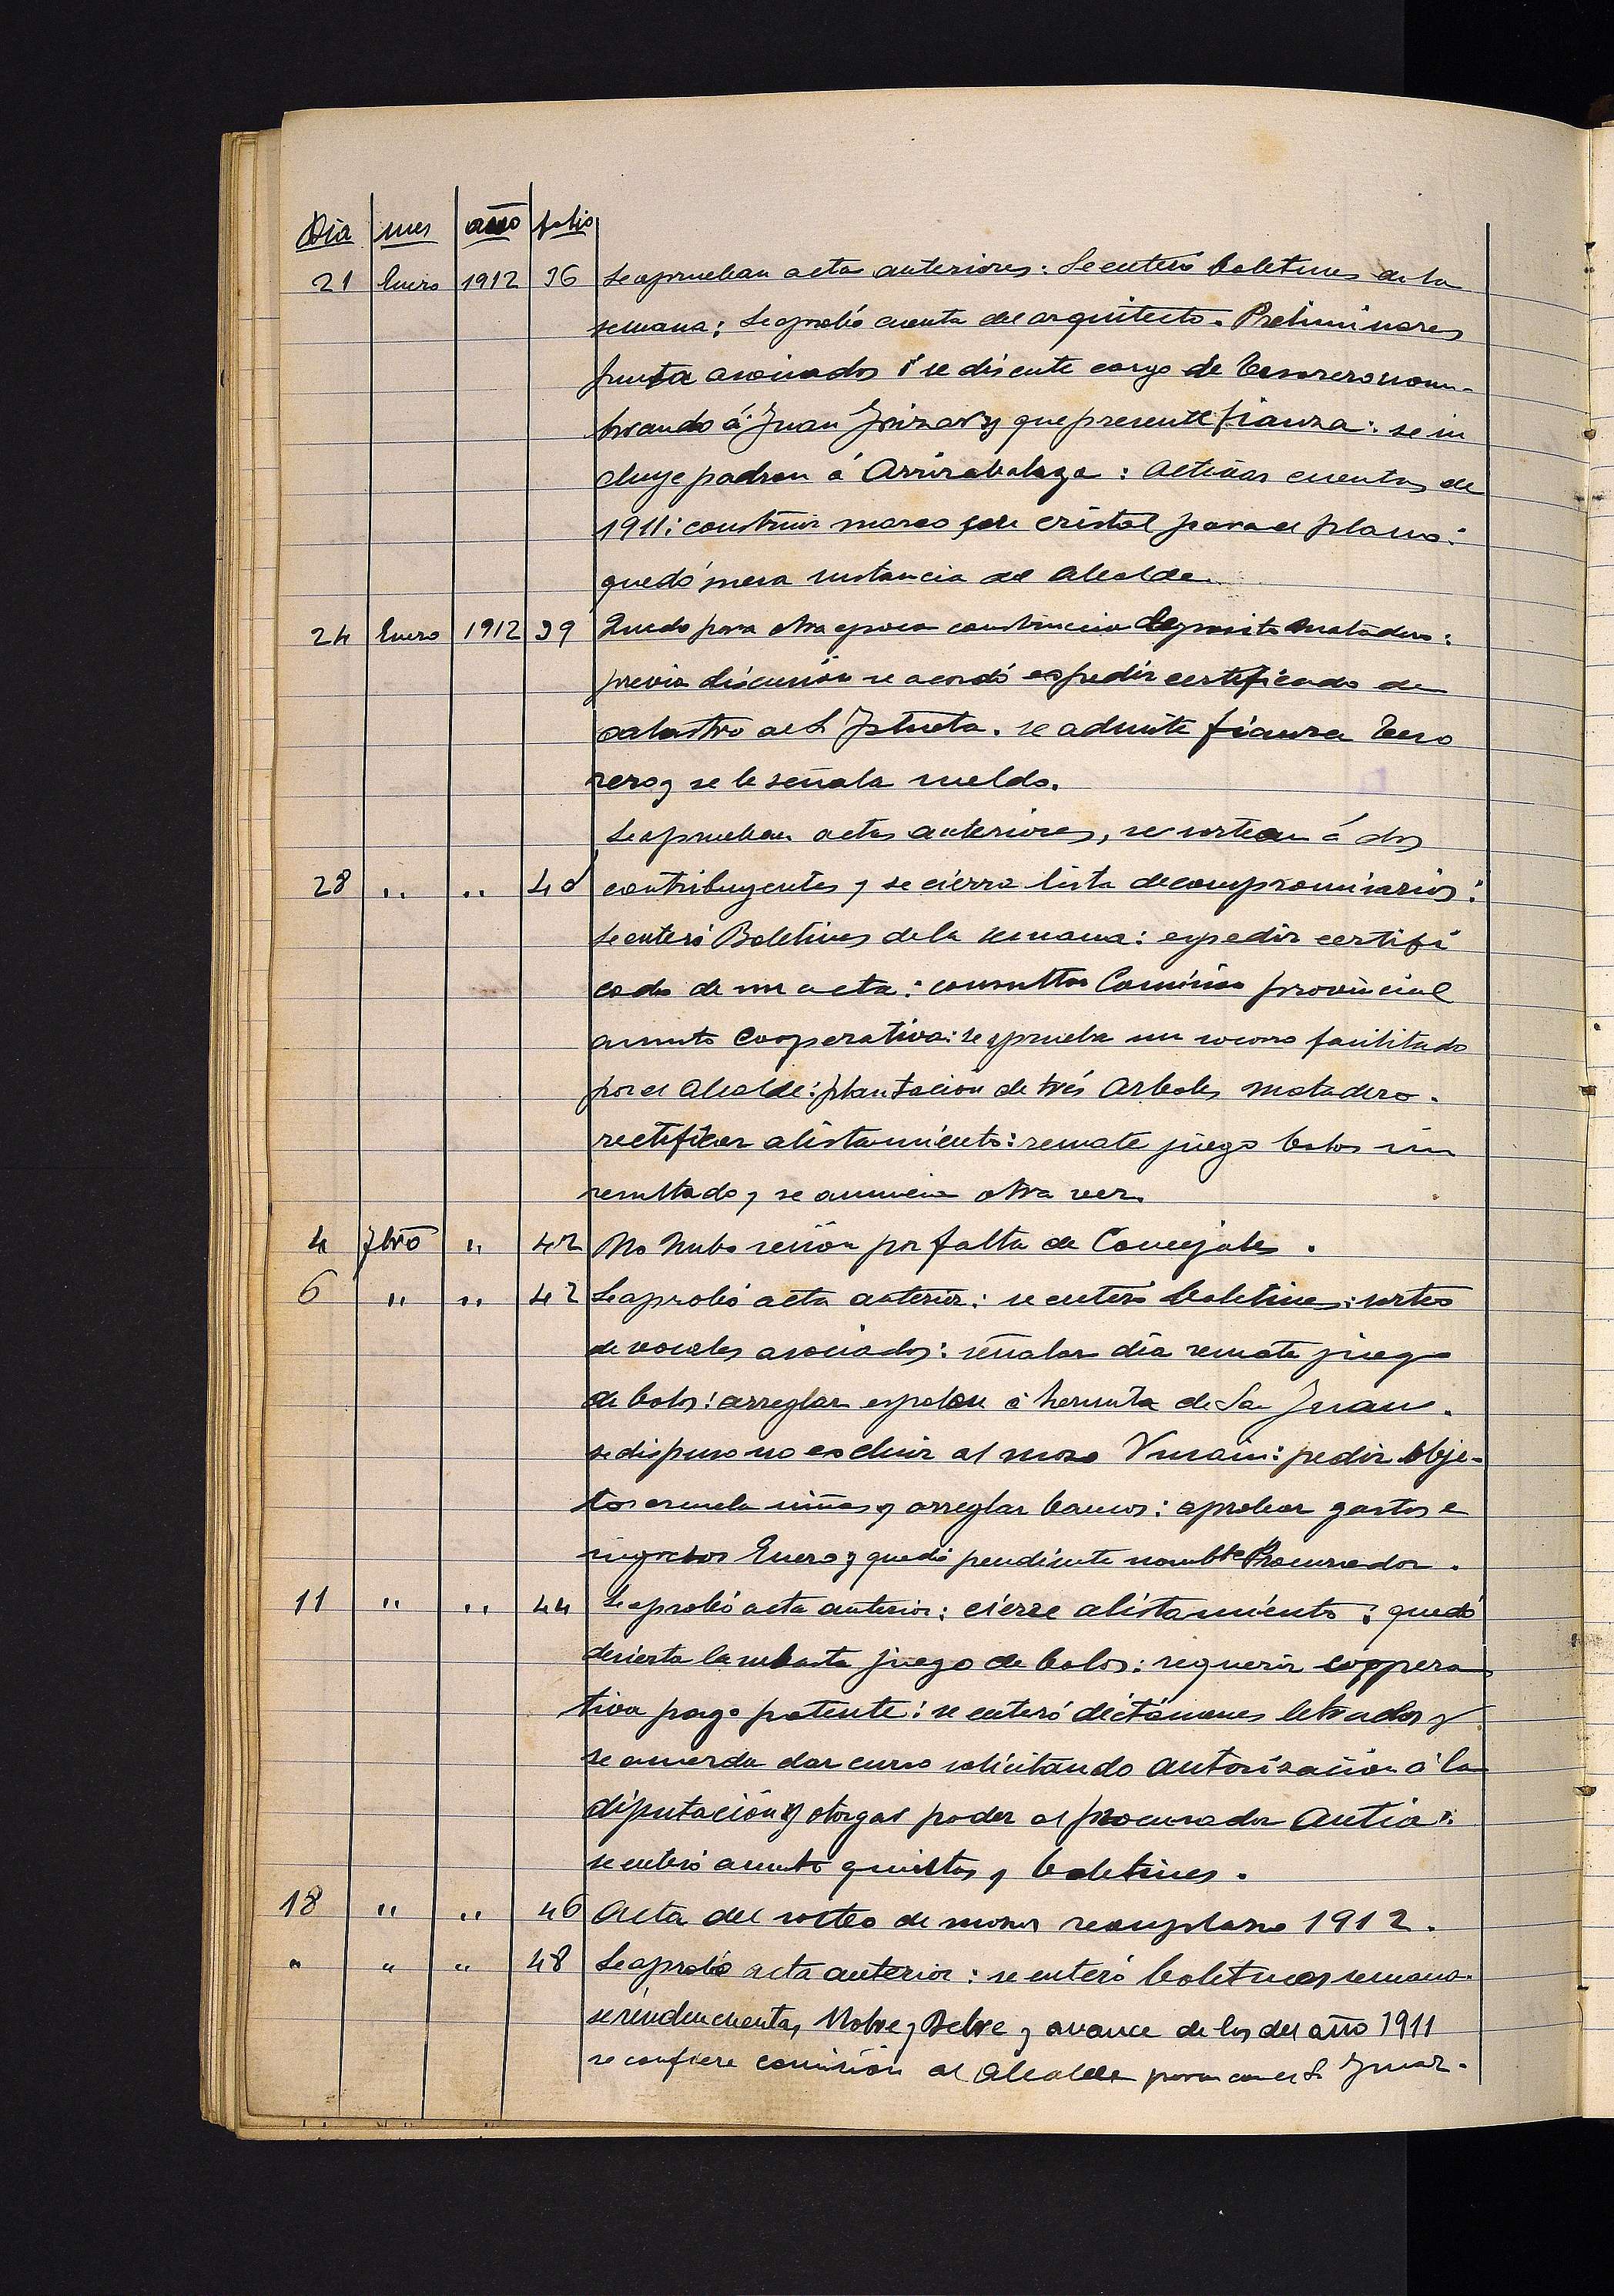 Dia mes año folio
21 Enero 1912 36 Se aprueban acta anteriores: Se enteró boletines de la
semana: Se aprobó cuenta del arquitecto. Preliminares
Junta asociados y se discute cargo de tesorero nom-
brando á Juan y que presente fianza: se in
cluye padron á Arrizabalaga: activar cuentas de
1911: construir marco con cristal para el plano:
quedó mesa instancia del Alcalde.
24 Enero 1912 39 Quedo para otra epoca construccion Deposito Matadero:
previa discusión se acordó expedir certificado de
catastro al S. Iztueta. se admite fianza Teso
rero y se le señala sueldo.
Se aprueban actas anteriores, se sortean á dos
28 " " 40 contribuyentes y se cierra lista de compromisarios:
Se enteró Boletines de la semana: expedir certifi
cado de un acta: consultar Comisión provincial
asunto Cooperativa: se aprueba un socorro facilitado
por el Alcalde: plantación de trés Arboles Matadero.
rectificar alistamiento: remate juego bolos sin
resultado y se anuncia otra vez.
4 Fbrō " 42 No hubo sesión por falta de Concejales.
6 " " 42 Se aprobó acta anterior: se enteró boletines: sorteo
de vocales asociados: señalar dia remate juego
de bolos: arreglar espolon á hermita de San Juan.
se dispuso no escluir al mozo Unsain: pedir obje-
tos escuela niñas y arreglar bancos: aprobar gastos e
ingresos Enero y quedó pendiente nombte Procurador.
11 " " 44 Se aprobó acta anterior: cierre alistamiento: quedó
desierta la subasta juego de bolos: requerir coopera
tiva pago patente: se enteró dictámenes letrados y
se acuerda dar curso solicitando autorización á la
diputación y otorgar poder al procurador Antia:
se enteró asunto quintas y boletines.
18 " " 46 Acta del sorteo de mozos reemplazo 1912.
" " " 48 Se aprobó acta anterior: se enteró boletines semana.
se rinden cuentas Nobre y Debre y avance de los del año 1911
se confiere comisión al Alcalde para con el S.